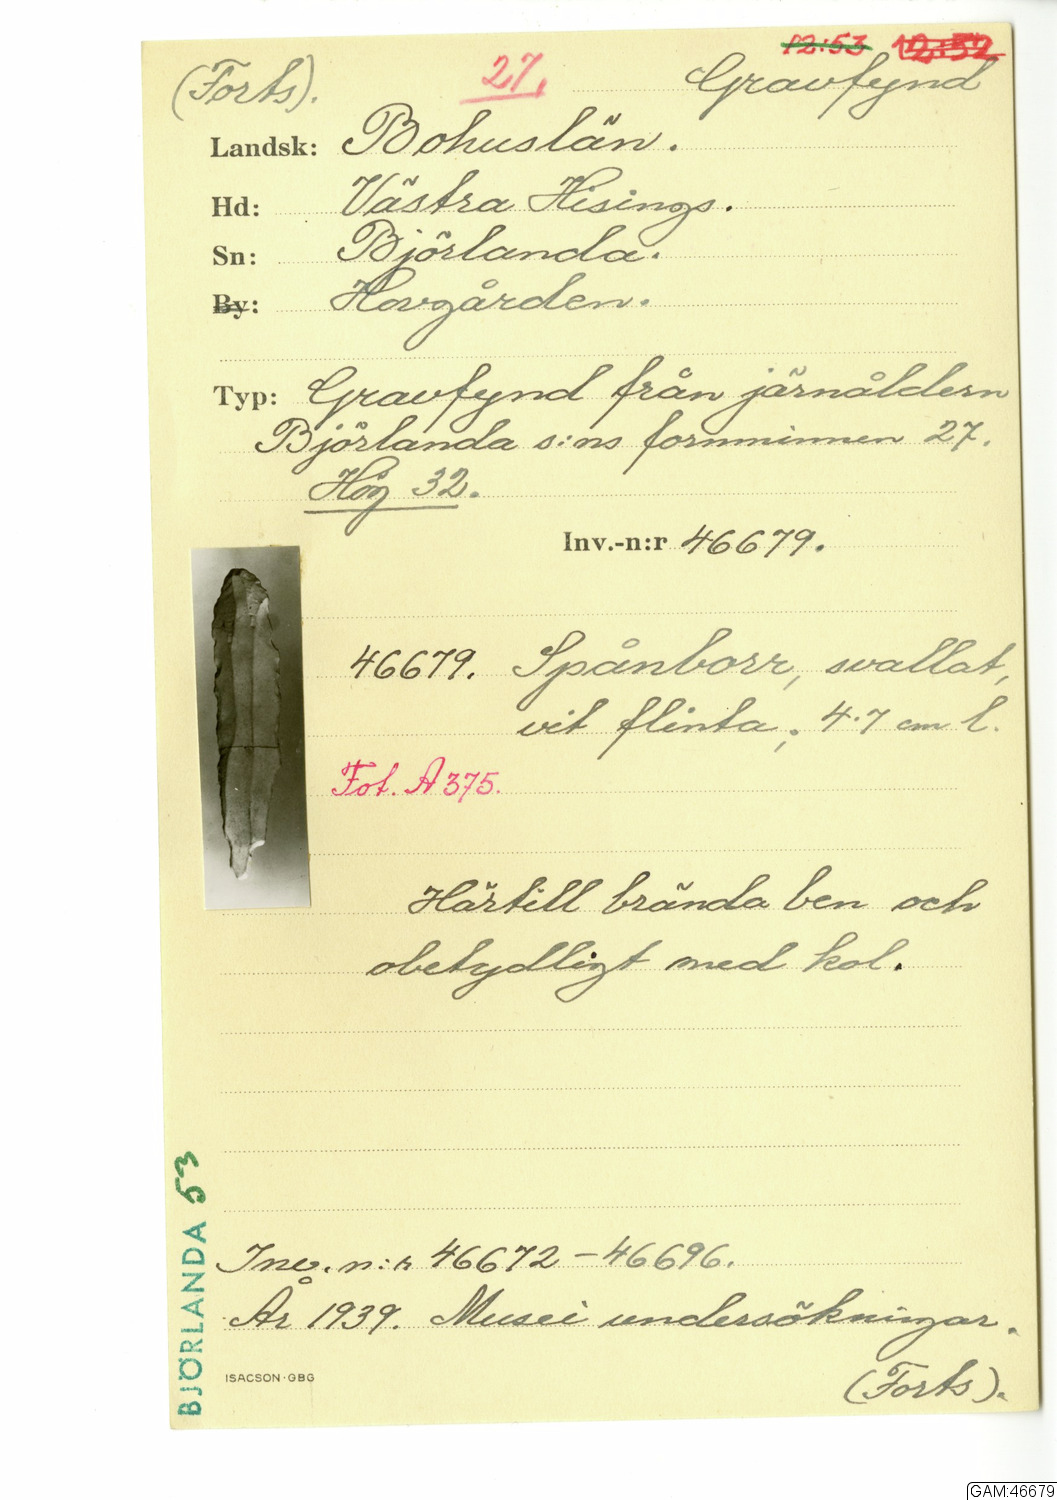 12:53 12:52
(Forts). 27. Gravfynd
Landsk: Bohuslän.
Hd: Västra Hisings.
Sn: Björlanda.
By: Hovgården.
Typ: Gravfynd från järnåldern
Björlanda s:ns fornminnen 27.
Hög 32.
Inv.-n:r 46679.
46679. Spånborr, svallat,
vit flinta; 4.7 cm l.
Fot. A 375.
Härtill brända ben och
obetydligt med kol.
Inv. n:r 46672-46696.
År 1939. Musei undersökningar.
ISACSON·GBG
(Forts).
BJÖRLANDA 53
GAM:46679